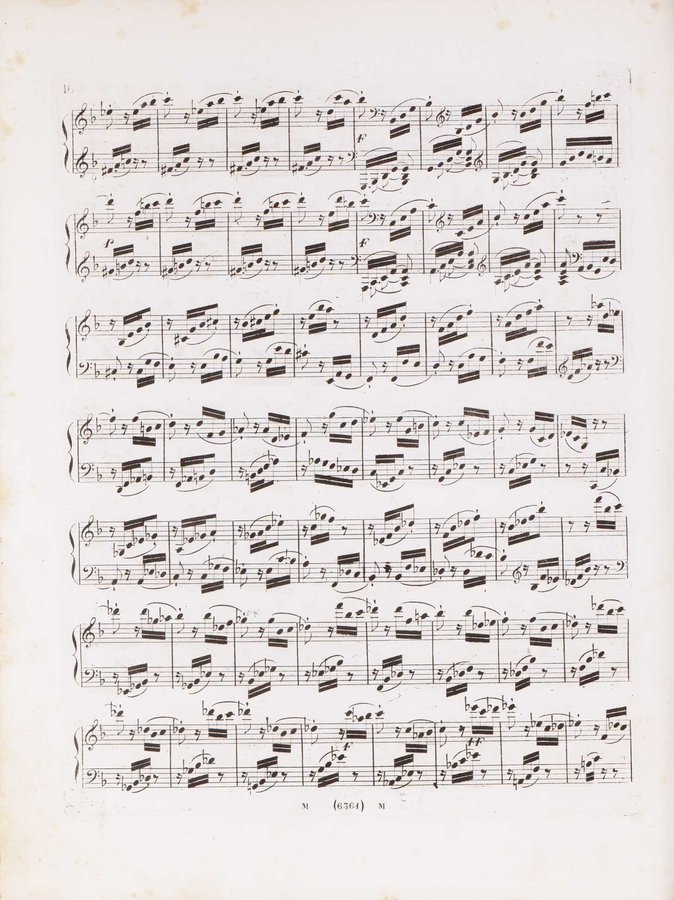 16
f
f
p
f
f
ff
M (6364) M